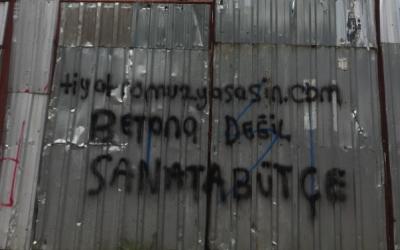 tiyatromuzyasasin.com
BETONA DEĞİL
SANATA BÜTÇE